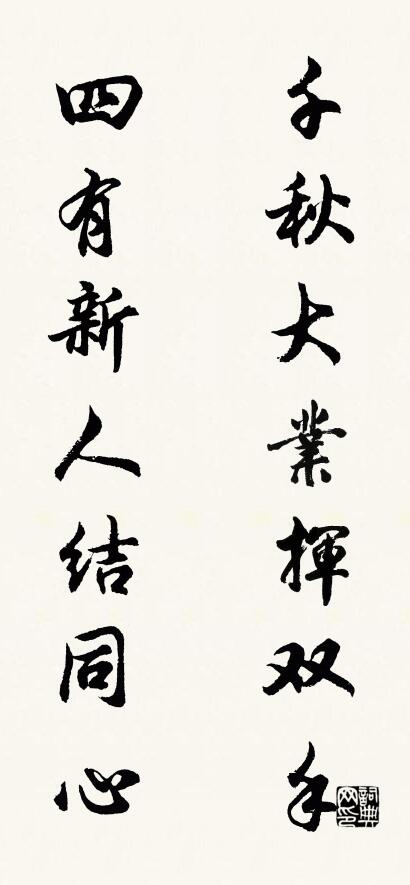 千秋大業揮双手
四有新人结同心
詞典网印